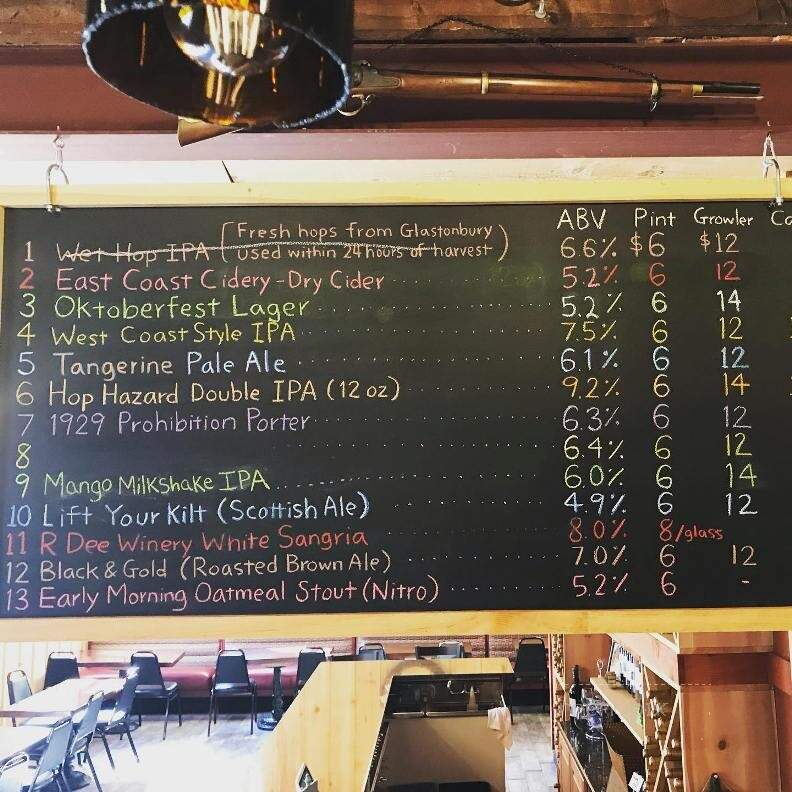 ABV Pint Growler Co
1 Wet Hop IPA (Fresh hops from Glastonbury used within 24 hours of harvest) 6.6% $6 $12
2 East Coast Cidery - Dry Cider 5.2% 6 12
3 Oktoberfest Lager 5.2% 6 14
4 West Coast Style IPA 7.5% 6 12
5 Tangerine Pale Ale 6.1% 6 12
6 Hop Hazard Double IPA (12 oz) 9.2% 6 14
7 1929 Prohibition Porter 6.3% 6 12
8 6.4% 6 12
9 Mango Milkshake IPA 6.0% 6 14
10 Lift Your Kilt (Scottish Ale) 4.9% 6 12
11 R Dee Winery White Sangria 8.0% 8/glass
12 Black & Gold (Roasted Brown Ale) 7.0% 6 12
13 Early Morning Oatmeal Stout (Nitro) 5.2% 6 -